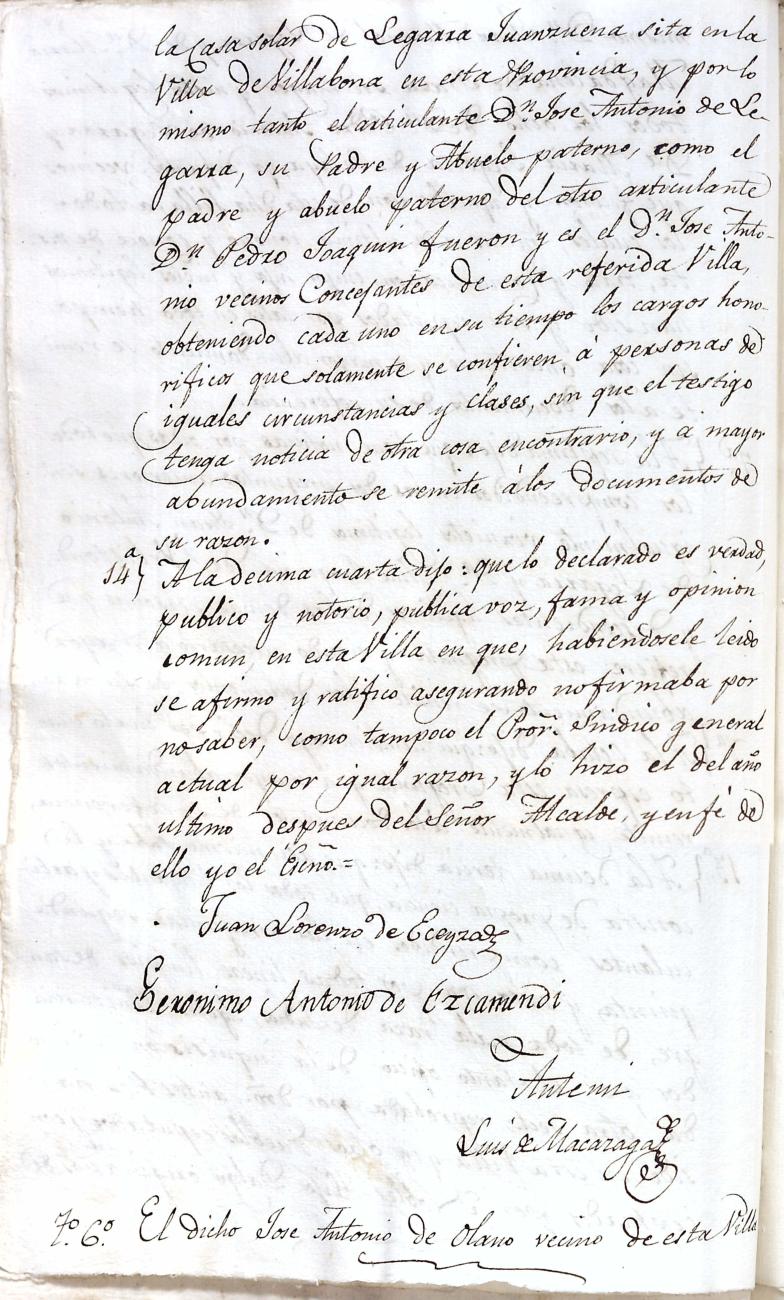 la Casa solar de Legarra Juanzuena sita en la
Villa de Villabona en esta Provincia, y por lo
mismo tanto el articulante Dn. Jose Antonio de Le-
garra, su Padre y Abuelo paterno, como el
padre y abuelo paterno del otro articulante
Dn Pedro Joaquin fueron y es el Dn. Jose Anto-
nio vecinos Concejantes de esta referida Villa,
obteniendo cada uno en su tiempo los cargos hono-
rificos que solamente se confieren á personas de
iguales circunstancias y clases, sin que el testigo
tenga noticia de otra cosa encontrario, y á mayor
abundamiento se remite á los documentos de
su razon.
14a} A la decima cuarta dijo: que lo declarado es verdad,
publico y notorio, publica voz, fama y opinion
comun en esta Villa en que, habiendosele leido
se afirmo y ratifico asegurando no firmaba por
no saber, como tampoco el Pror. Sindico general
actual por igual razon, y lo hizo el del año
ultimo despues del Señor Alcalde, y en fé de
ello yo el Esno.=
Juan Lorenzo de Eceyza
Geronimo Antonio de Ezcamendi
Antemi
Luis de Macazaga
To. 6o. El dicho Jose Antonio de Olano vecino de esta Villa